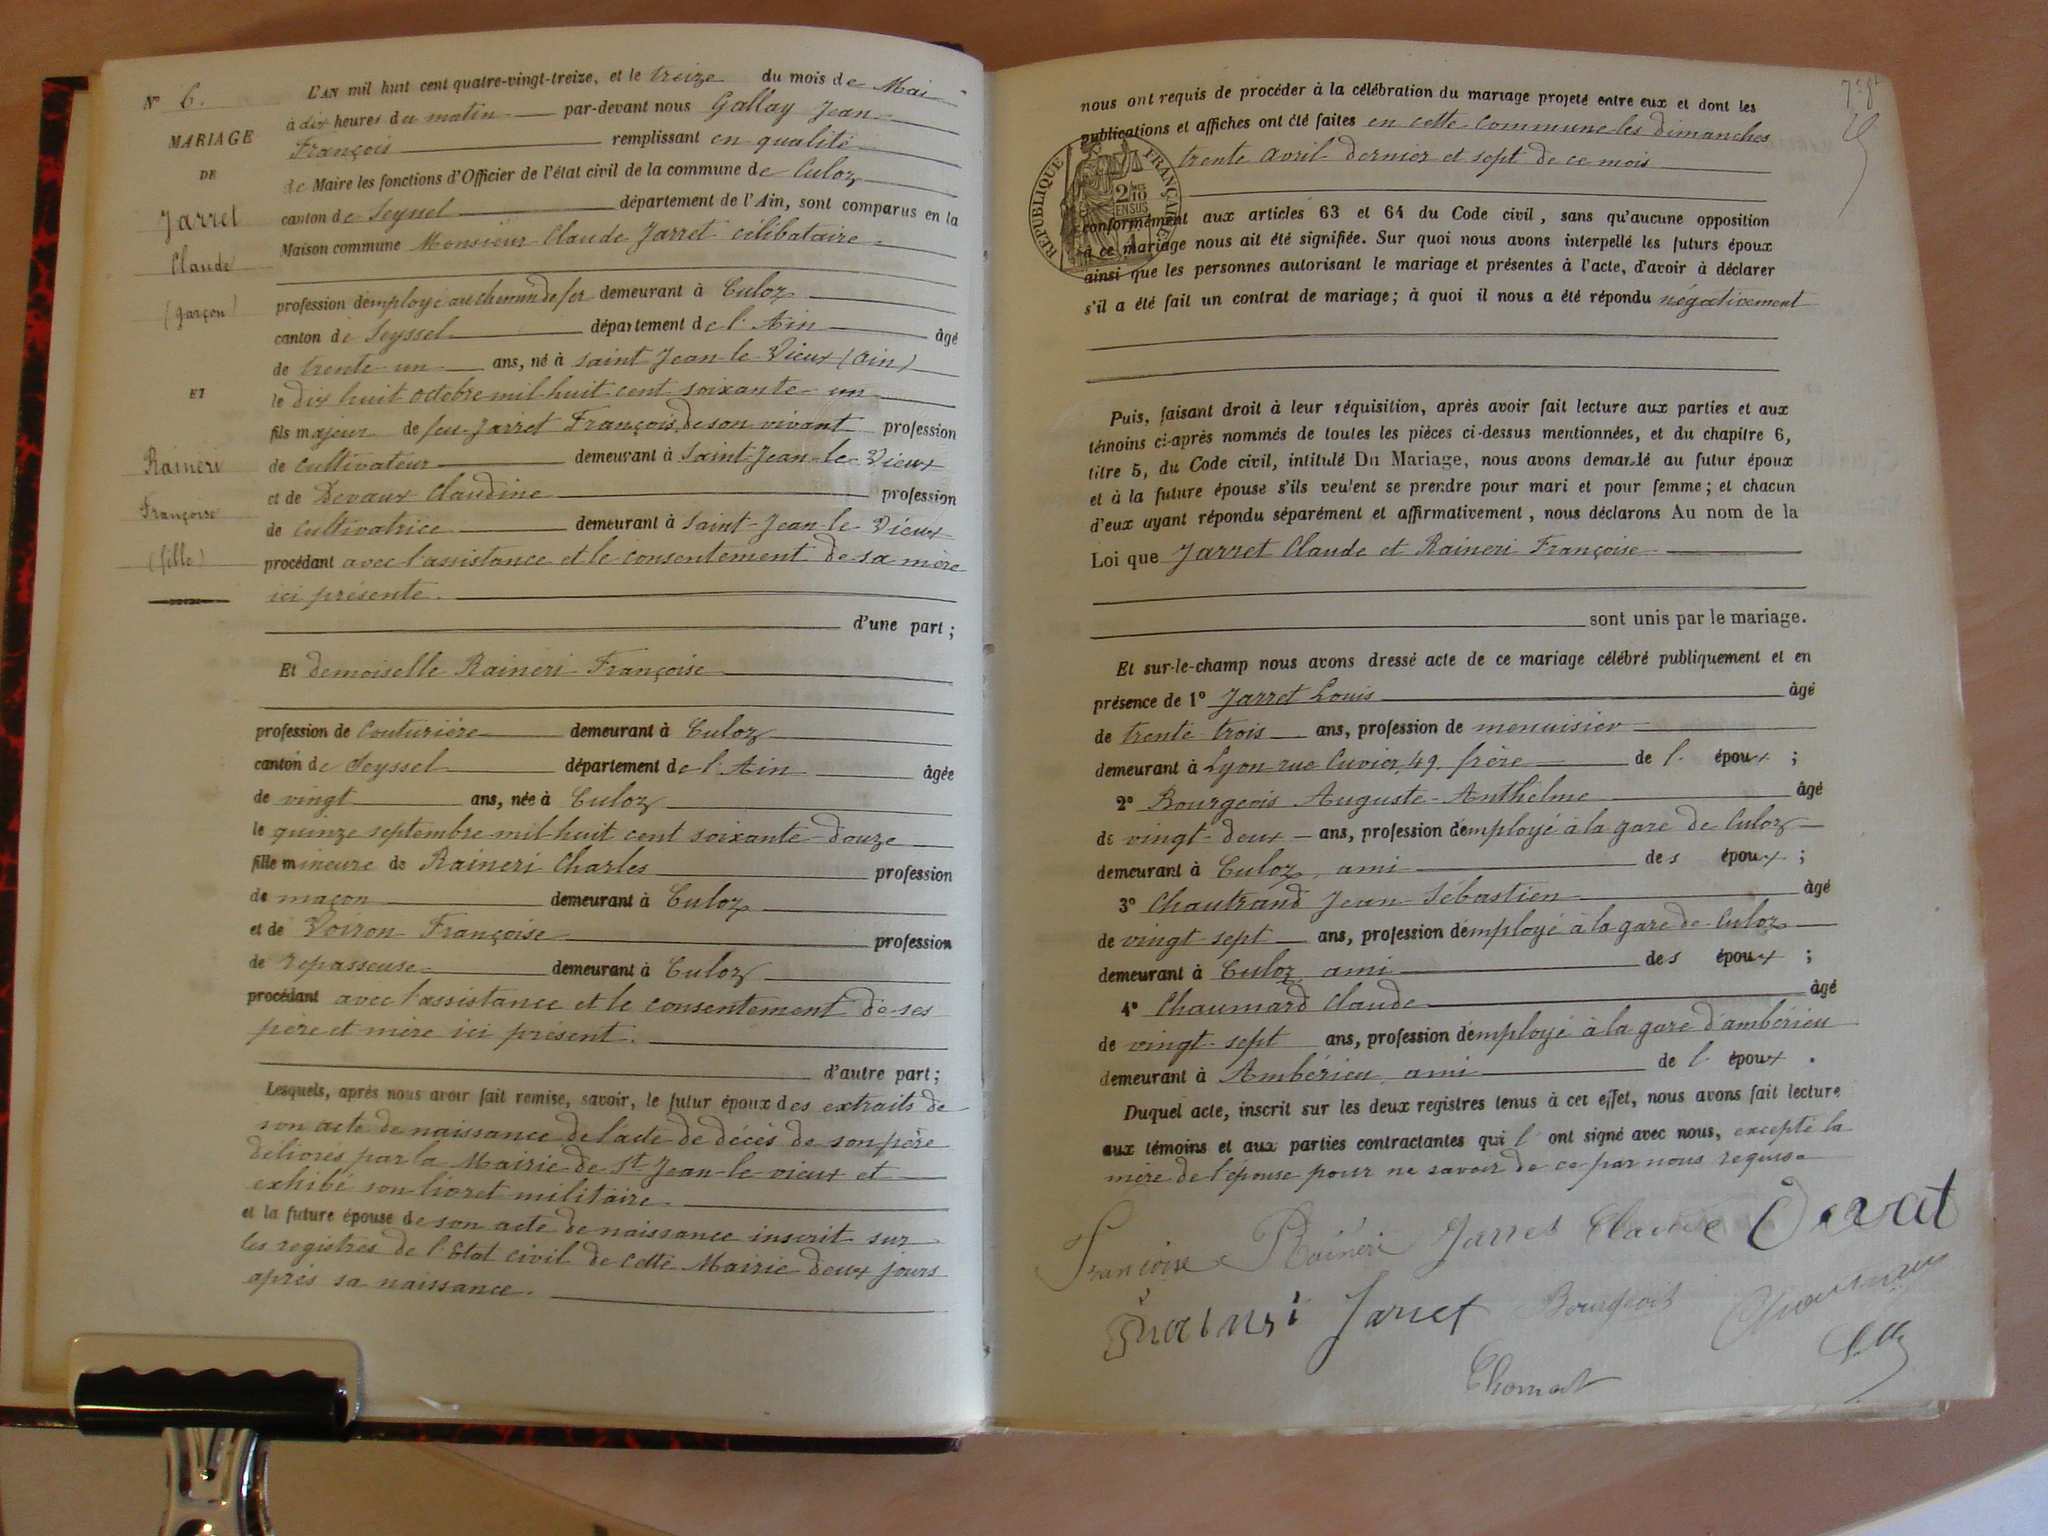 N° 6.
MARIAGE
DE
Jarret
Claude
(garçon)
ET
Raineri
Françoise
(fille)
L'AN mil huit cent quatre-vingt-treize, et le treize du mois de Mai
à dix heures du matin par-devant nous Gallay Jean
François remplissant en qualité
de Maire les fonctions d'Officier de l'état civil de la commune de Culoz
canton de Seyssel département de l'Ain, sont comparus en la
Maison commune Monsieur Claude Jarret célibataire
profession d'employé au chemin de fer demeurant à Culoz
canton de Seyssel département de l'Ain âgé
de trente-un ans, né à Saint Jean-le-Vieux (Ain)
le dix huit octobre mil huit cent soixante-un
fils majeur de feu Jarret François, de son vivant profession
de cultivateur demeurant à Saint-Jean-le-Vieux
et de Devaux Claudine profession
de cultivatrice demeurant à Saint-Jean-le-Vieux
procédant avec l'assistance et le consentement de sa mère
ici présente.
d'une part;
Et demoiselle Raineri Françoise
profession de couturière demeurant à Culoz
canton de Seyssel département de l'Ain âgée
de vingt ans, née à Culoz
le quinze septembre mil huit cent soixante-douze
fille mineure de Raineri Charles profession
de maçon demeurant à Culoz
et de Voiron Françoise profession
de repasseuse demeurant à Culoz
procédant avec l'assistance et le consentement de ses
père et mère ici présent.
d'autre part;
Lesquels, après nous avoir fait remise, savoir, le futur époux des extraits de
son acte de naissance de l'acte de décès de son père
délivrés par la Mairie de St Jean-le-vieux et
exhibé son livret militaire
et la future épouse de son acte de naissance inscrit sur
les registres de l'état civil de cette Mairie deux jours
après sa naissance.
nous ont requis de procéder à la célébration du mariage projeté entre eux et dont les
publications et affiches ont été faites en cette commune les dimanches
trente avril dernier et sept de ce mois
RÉPUBLIQUE FRANÇAISE
2/10 EN SUS
conformément aux articles 63 et 64 du Code civil, sans qu'aucune opposition
à ce mariage nous ait été signifiée. Sur quoi nous avons interpellé les futurs époux
ainsi que les personnes autorisant le mariage et présentes à l'acte, d'avoir à déclarer
s'il a été fait un contrat de mariage; à quoi il nous a été répondu négativement
Puis, faisant droit à leur réquisition, après avoir fait lecture aux parties et aux
témoins ci-après nommés de toutes les pièces ci-dessus mentionnées, et du chapitre 6,
titre 5, du Code civil, intitulé Du Mariage, nous avons demandé au futur époux
et à la future épouse s'ils veulent se prendre pour mari et pour femme; et chacun
d'eux ayant répondu séparément et affirmativement, nous déclarons Au nom de la
Loi que Jarret Claude et Raineri Françoise
sont unis par le mariage.
Et sur-le-champ nous avons dressé acte de ce mariage célébré publiquement et en
présence de 1° Jarret Louis âgé
de trente-trois ans, profession de menuisier
demeurant à Lyon rue Cuvier, 49, frère de l'époux;
2° Bourgeois Auguste-Anthelme âgé
de vingt-deux ans, profession d'employé à la gare de Culoz
demeurant à Culoz, ami des époux;
3° Chautrand Jean Sébastien âgé
de vingt-sept ans, profession d'employé à la gare de Culoz
demeurant à Culoz, ami des époux;
4° Chaumard Claude âgé
de vingt-sept ans, profession d'employé à la gare d'ambérieu
demeurant à Ambérieu, ami de l'époux.
Duquel acte, inscrit sur les deux registres tenus à cet effet, nous avons fait lecture
aux témoins et aux parties contractantes qui l'ont signé avec nous, excepté la
mère de l'épouse pour ne savoir de ce par nous requise
Françoise Raineri Jarret Claude
Jarret Bourgeois